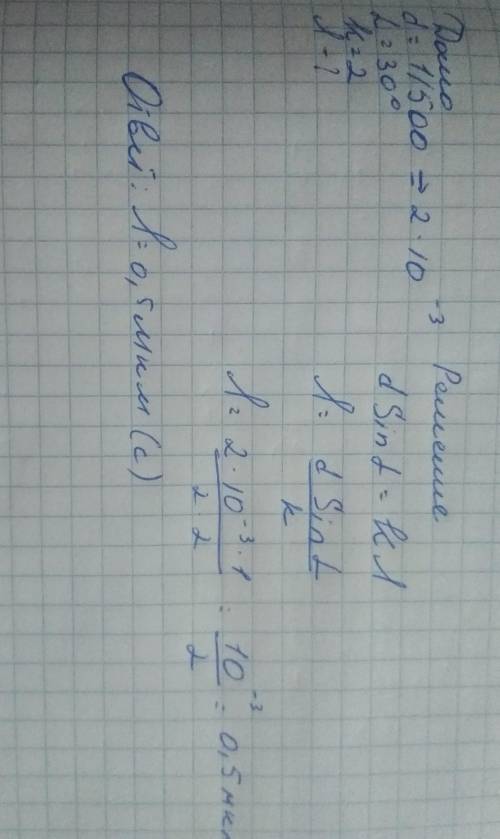 Дано
d = 1/500 ⇒ 2 · 10⁻³
L = 30°
k = 2
λ - ?
Решение
d Sin L = k λ
λ = d Sin L / k
λ = 2 · 10⁻³ · 1 / 2 · 2 = 10⁻³ / 2 = 0,5 мкм
Ответ: λ = 0,5 мкм (с)